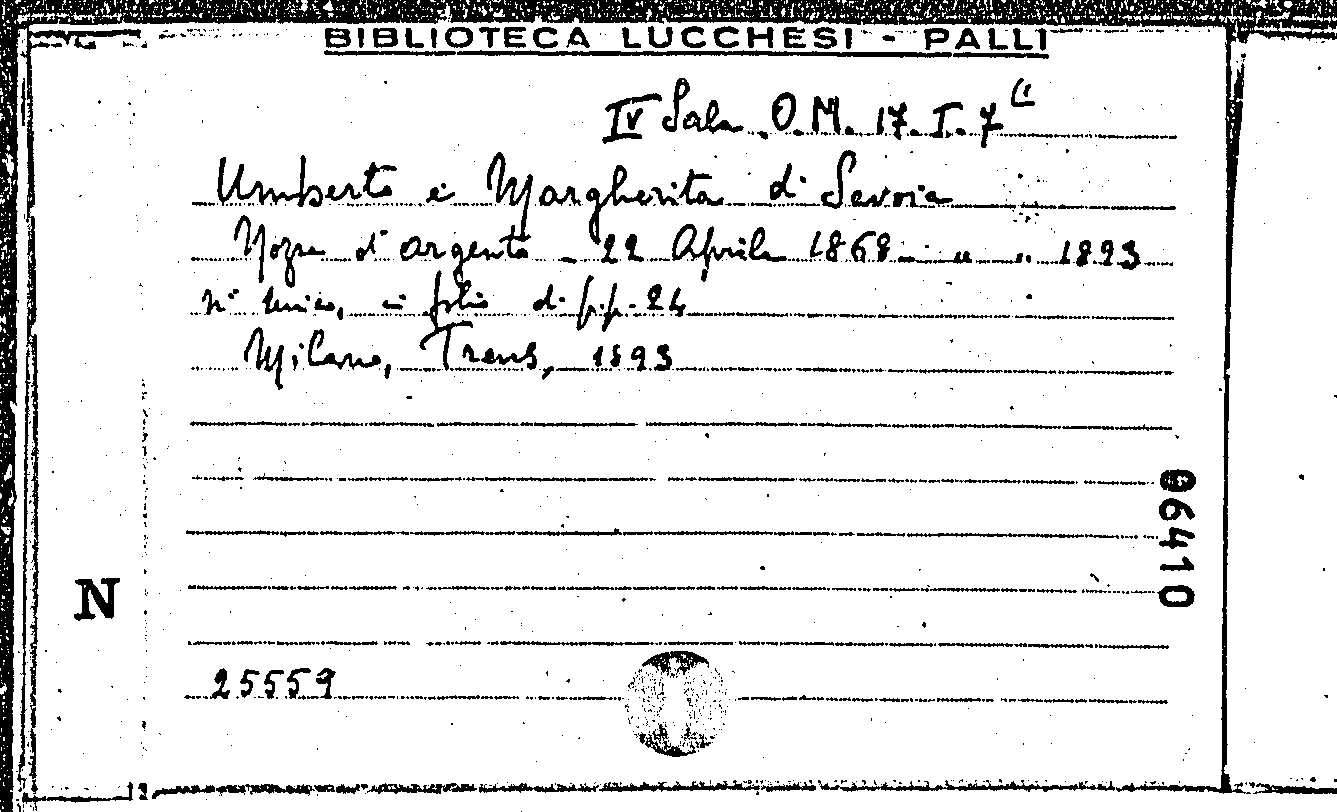 BIBLIOTECA LUCCHESI - PALLI
IV Sala O.M. 17. I. 7 (1
Umberto e Margherita di Savoia
Nozze d'argento - 22 Aprile 1868 - " " 1893
N° unico, in folio di pp. 24
Milano, Treves, 1893
06410
N
25559